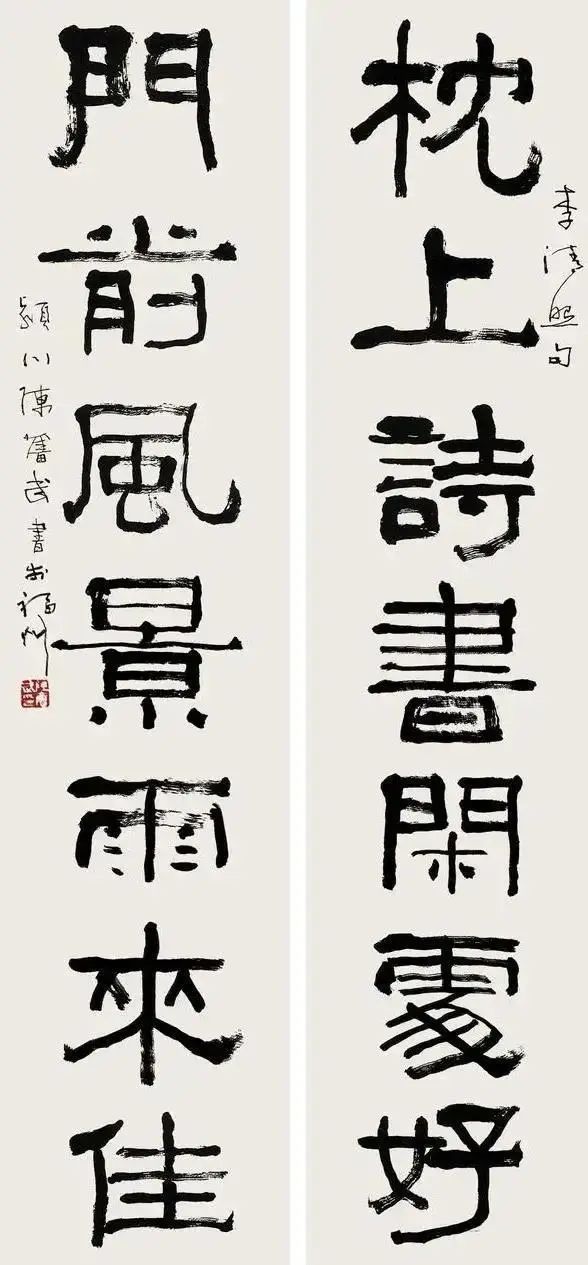 枕上詩書閑處好
李清照句
門前風景雨來佳
潁川陳奮武書於福州